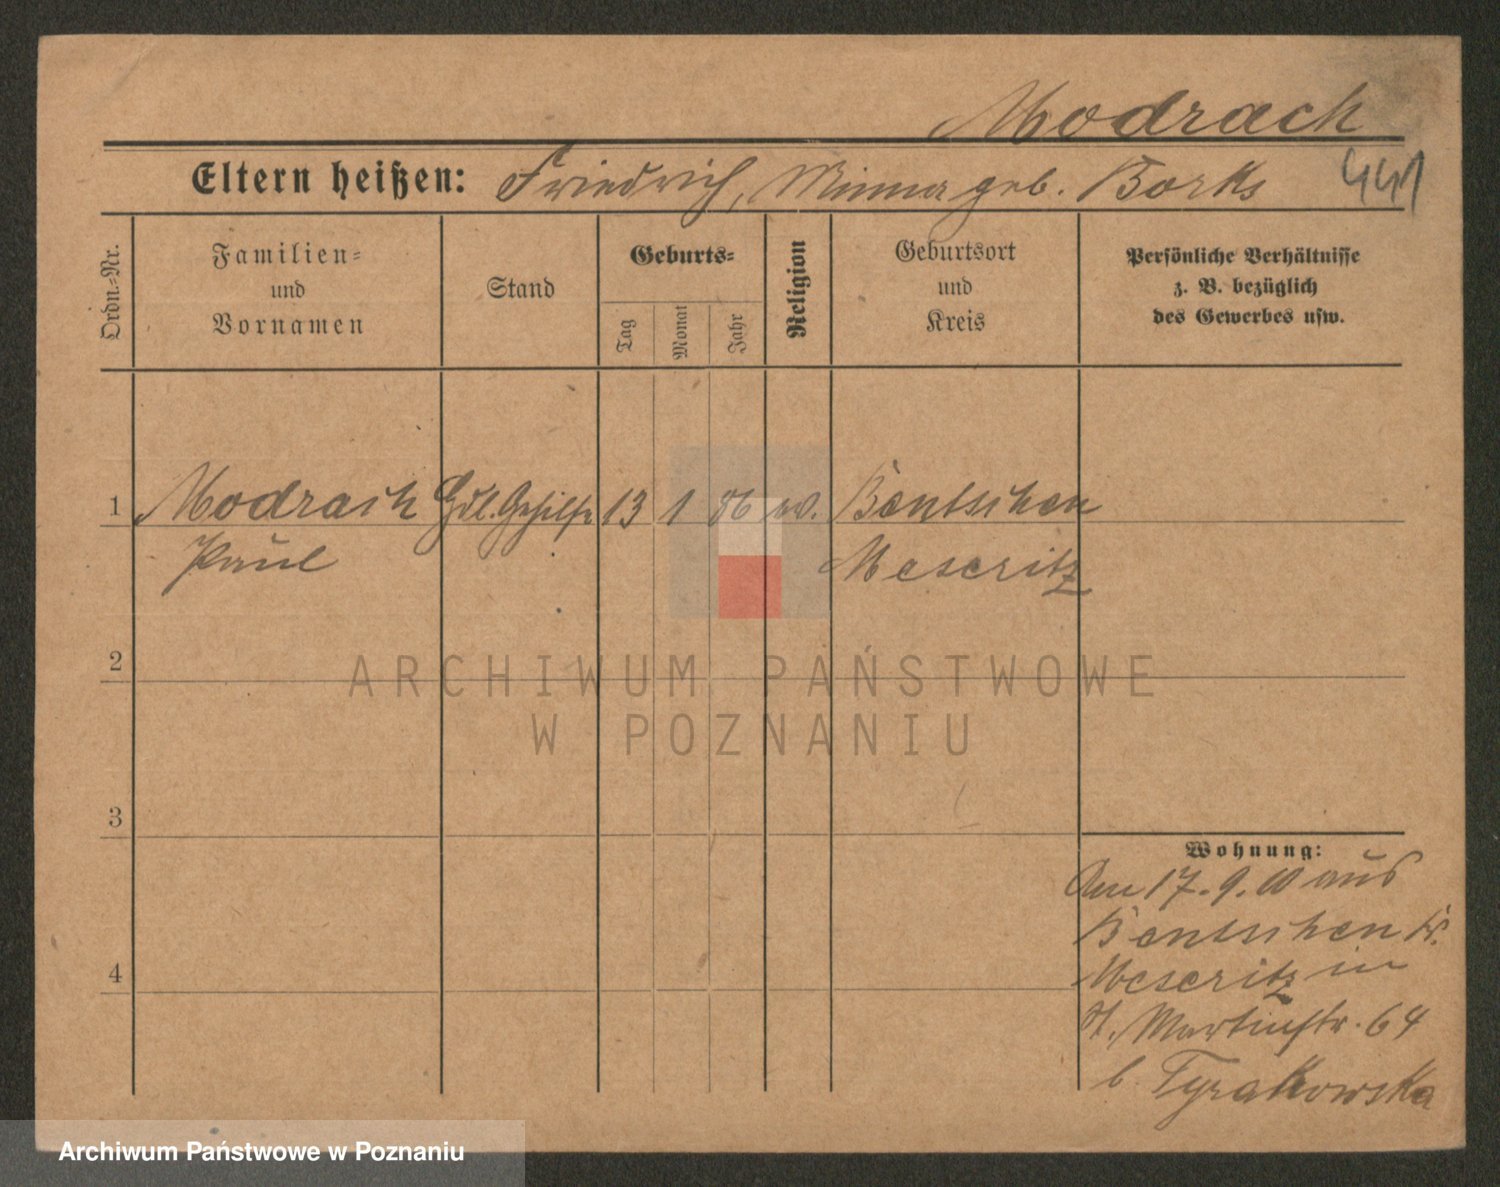 Modrach
Eltern heißen: Friedrich, Minna geb. Borks
441
Ordn.-Nr.
Familien- und Vornamen
Stand
Geburts-
Tag
Monat
Jahr
Religion
Geburtsort und Kreis
Persönliche Verhältnisse
z. B. bezüglich
des Gewerbes usw.
1 Modrach Hdl. Gehilfe 13 1 86 ev. Bentschen
Paul Meseritz
2
3
4
Wohnung:
Am 17.9.00 aus
Bentschen Kr.
Meseritz in
St. Martinstr. 64
b. Tyrakowska
ARCHIWUM PAŃSTWOWE
W POZNANIU
Archiwum Państwowe w Poznaniu